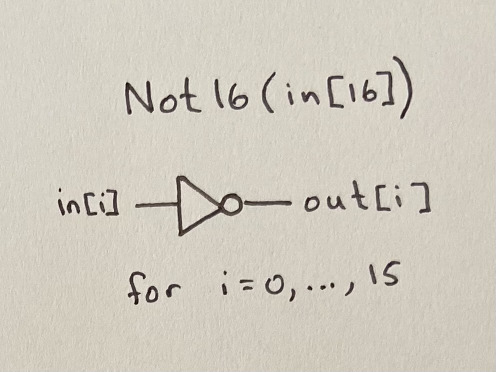 Not16(in[16])
in[i] out[i]
for i=0,...,15